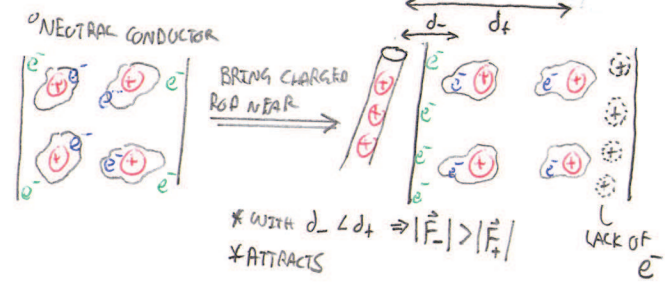 °NEUTRAL CONDUCTOR
e⁻ e⁻ e⁻ e⁻
+ e⁻ + e⁻
+ e⁻ + e⁻
BRING CHARGED
ROD NEAR
d₋ d₊
+ + +
e⁻ e⁻ e⁻ e⁻
e⁻ + e⁻ +
e⁻ + e⁻ +
+ + + +
* WITH d₋ < d₊ ⇒ |F⃗₋| > |F⃗₊|
* ATTRACTS
LACK OF
e⁻